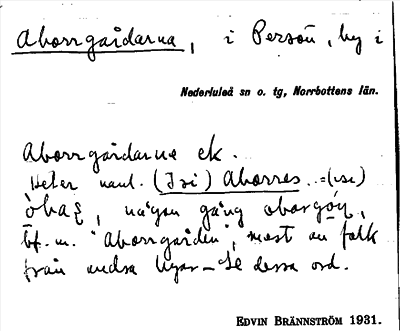 Aborrgårdarna, i Persön, by i
Nederluleå sn o. tg, Norrbottens län.
Aborrgårdarna ek.
Heter vanl. (Isi) Aborres =(ise)
òbaʂ, na'gon gå'ng aborgó̱ɳ,
Bf. m. "Aborrgården", mest av folk
från andra byar – Se dessa ord.
EDVIN BRÄNNSTRÖM 1931.